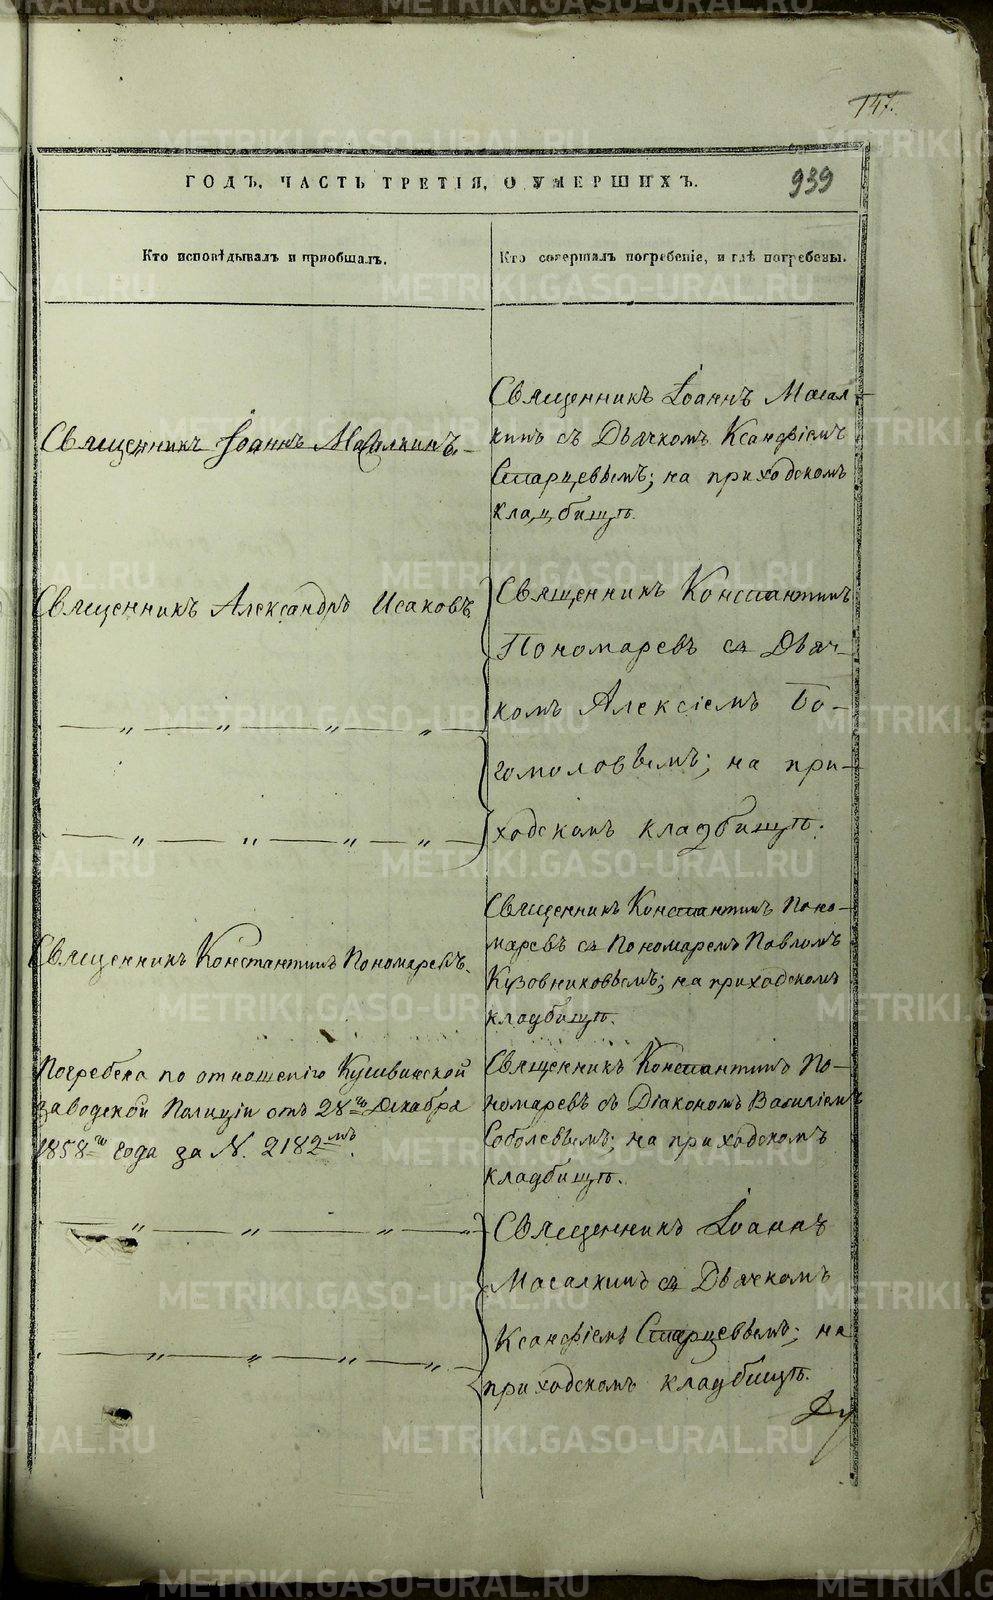 147.
939
ГОДЪ, ЧАСТЬ ТРЕТІЯ, О УМЕРШИХЪ.
Кто исповѣдывалъ и пріобщалъ.
Кто совершалъ погребеніе, и гдѣ погребены.
Священникъ Іоаннъ Масалкинъ.
Священникъ Іоаннъ Масал-
кинъ съ Дьячкомъ Ксанфіемъ
Старцевымъ; на приходскомъ
кладбищѣ.
Священникъ Александръ Исаковъ.
— „ — „ — „ — „ —
— „ — „ — „ — „ —
Священникъ Константинъ
Пономаревъ съ Дьяч-
комъ Алексіемъ Бо-
гомоловымъ; на при-
ходскомъ кладбищѣ.
Священникъ Константинъ Пономаревъ.
Священникъ Константинъ Поно-
маревъ съ Пономаремъ Павломъ
Кузовниковымъ; на приходскомъ
кладбищѣ.
Погребена по отношенію Кушвинской
заводской Полиціи отъ 28го Декабря
1858го года за N. 2182мъ.
Священникъ Константинъ По-
номаревъ съ Діакономъ Василіемъ
Соболевымъ; на приходскомъ
кладбищѣ.
— „ — „ — „ — „
— „ — „ — „ — „ —
Священникъ Іоаннъ
Масалкинъ съ Дьячкомъ
Ксанфіемъ Старцевымъ; на
приходскомъ кладбищѣ.
METRIKI.GASO-URAL.RU